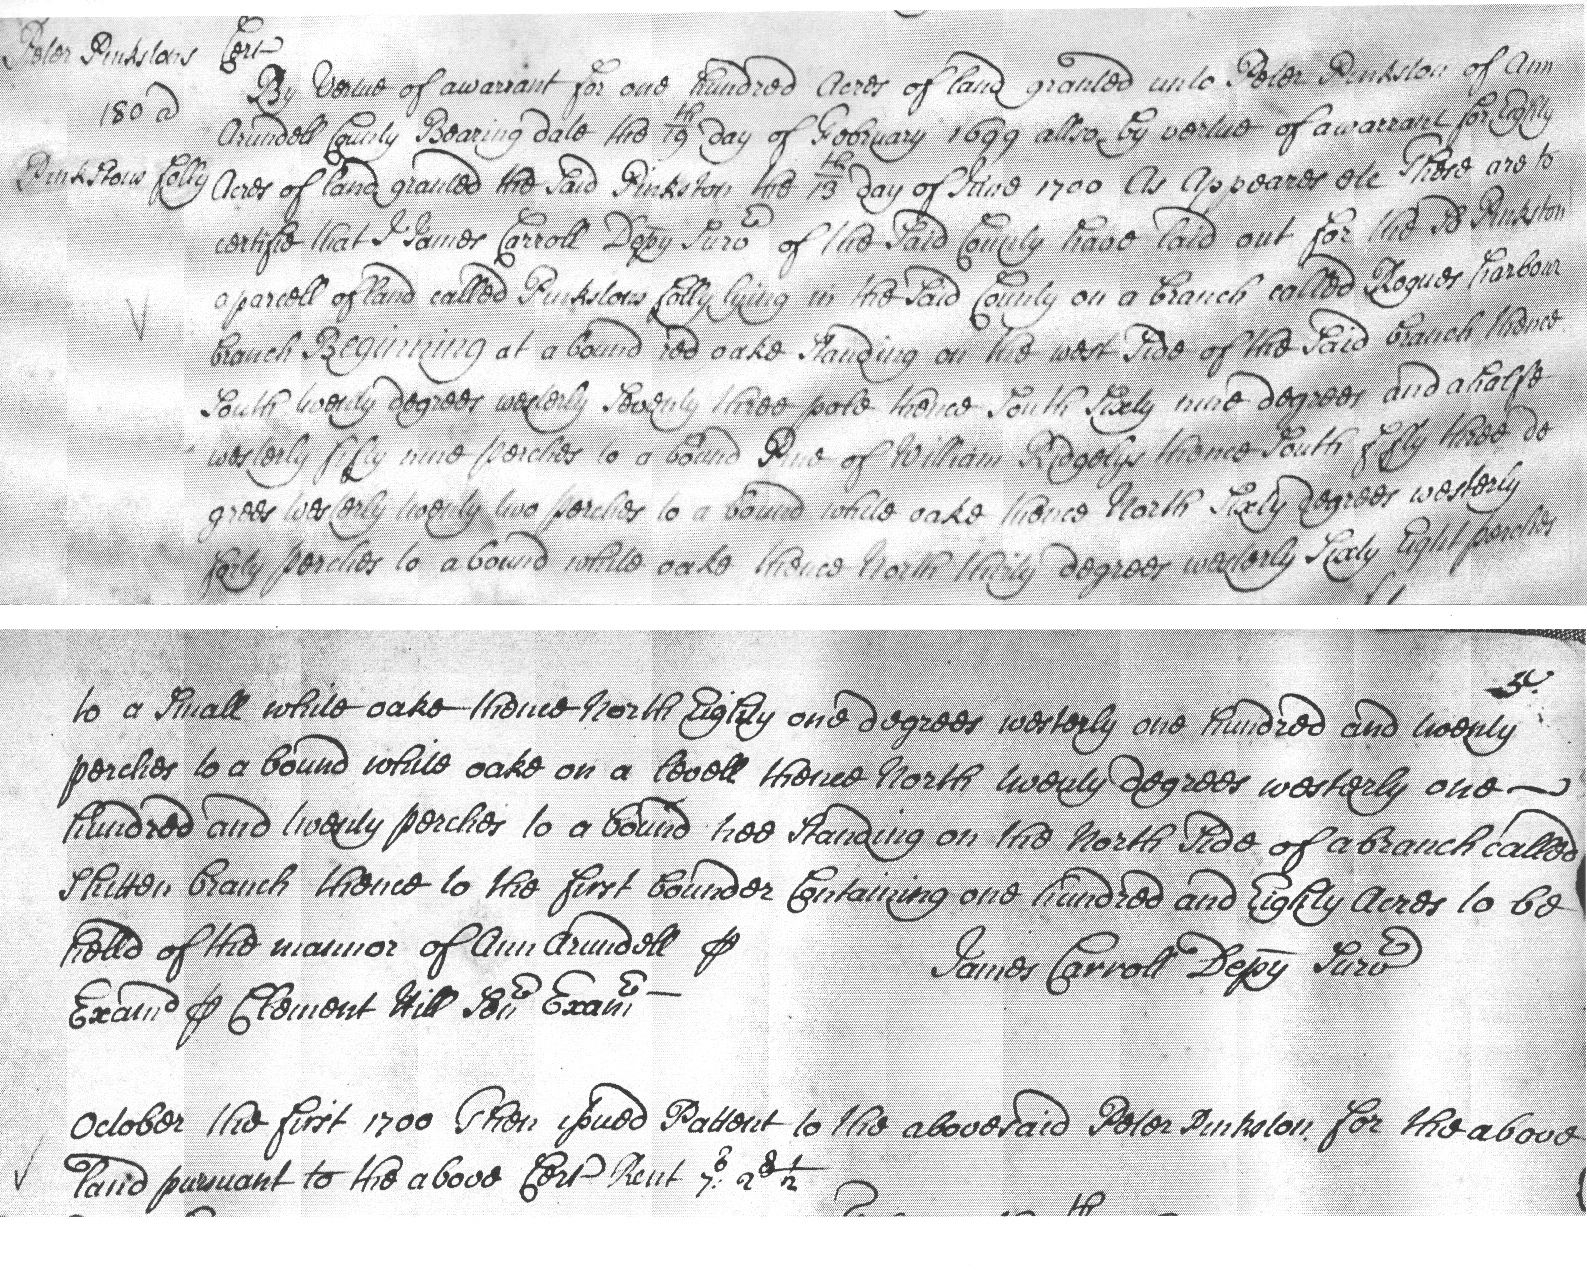 Peter Pinkstons Cert
180 a
Pinkstons folly
By Vertue of a warrant for one hundred Acres of land granted unto Peter Pinkston of Ann
Arundell County Bearing date the 19th day of February 1699 allso by vertue of a warrant for Eighty
Acres of land granted the Said Pinkston the 13th day of June 1700 As Appeares etc These are to
certifie that I James Carroll Depy Survr of the Said County have laid out for the Sd Pinkston
a parcell of land called Pinkstons folly lying in the Said County on a branch called Rogues harbour
branch Beginning at a bound red oake Standing on the west Side of the Said branch thence
South twenty degrees westerly Seventy three pole thence South Sixty nine degrees and a halfe
westerly fifty nine perches to a bound Pine of William Ridgelys thence South fifty three de
grees westerly twenty two perches to a bound white oake thence North Sixty degrees westerly
forty perches to a bound white oake thence North thirty degrees westerly Sixty Eight perches
to a Small white oake thence North Eighty one degrees westerly one hundred and twenty
perches to a bound white oake on a levell thence North twenty degrees westerly one
hundred and twenty perches to a bound tree Standing on the North Side of a branch called
Shitten branch thence to the first bounder Containing one hundred and Eighty Acres to be
helld of the mannor of Ann Arundell ꝑ James Carroll Depy Survr
Examd ꝑ Clement Hill Senr Examr
October the first 1700 Then issued Pattent to the abovesaid Peter Pinkston for the above
land pursuant to the above Cert Rent 7s 2d 1/2